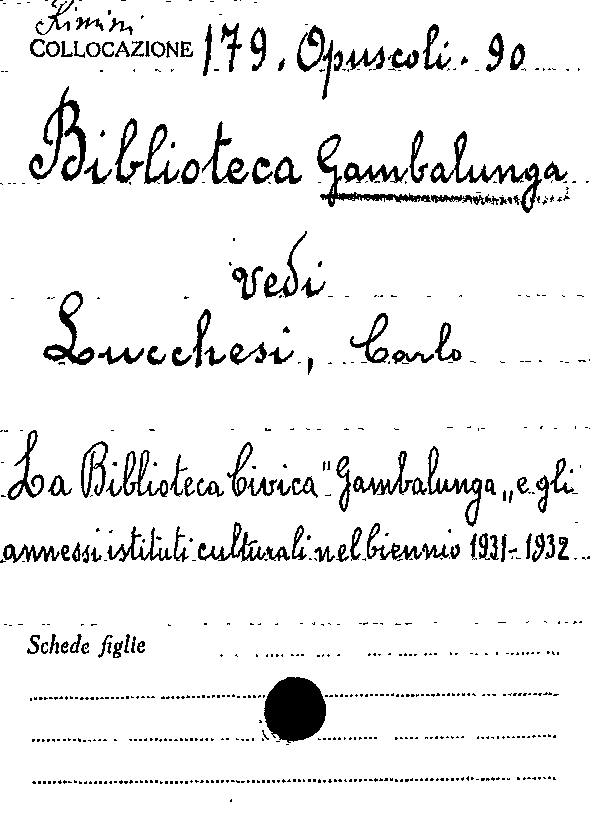 Rimini
COLLOCAZIONE 179. Opuscoli. 90
Biblioteca Gambalunga
vedi
Lucchesi, Carlo
La Biblioteca Civica "Gambalunga„ e gli
annessi istituti culturali nel biennio 1931-1932
Schede figlie